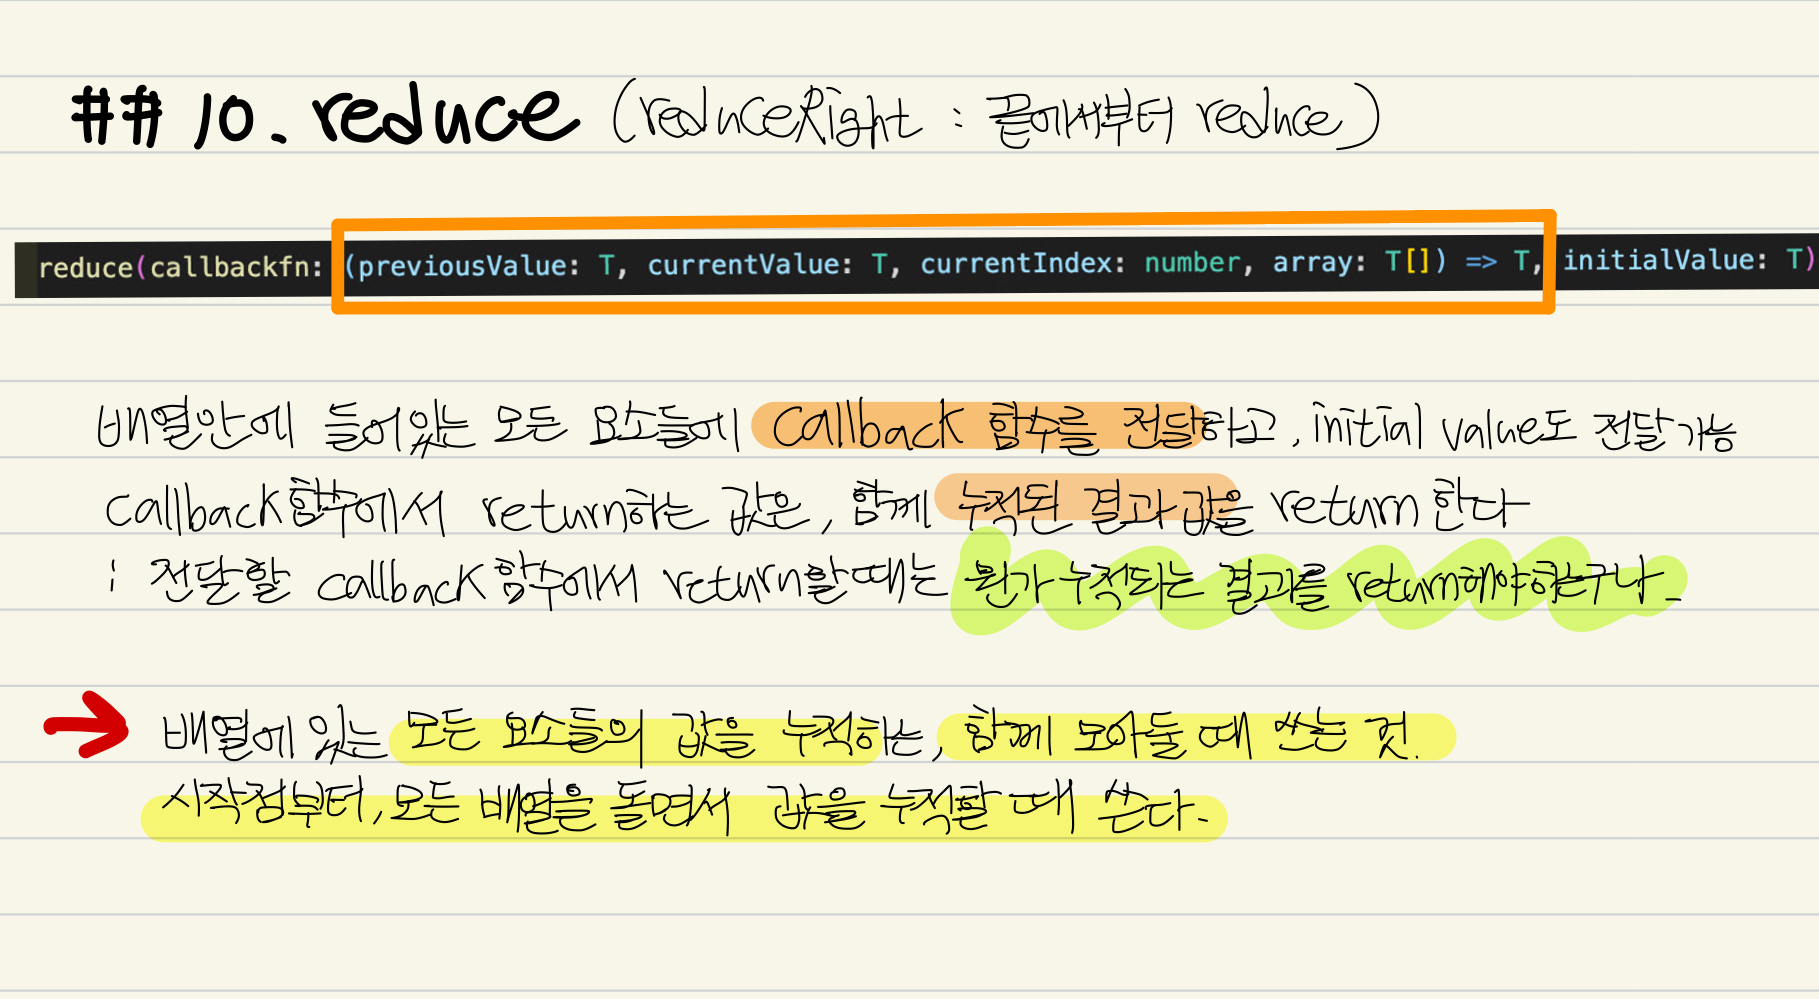 ## 10. reduce (reduceRight : 끝에서부터 reduce)
reduce(callbackfn: (previousValue: T, currentValue: T, currentIndex: number, array: T[]) => T, initialValue: T)
배열안에 들어있는 모든 요소들에 callback 함수를 전달하고, initial value도 전달가능
callback함수에서 return하는 값은, 함께 누적된 결과값을 return 한다
: 전달할 callback함수에서 return할때는 뭔가 누적되는 결과를 return해야하는구나.
→ 배열에 있는 모든 요소들의 값을 누적하는, 함께 모아둘 때 쓰는 것.
시작점부터, 모든 배열을 돌면서 값을 누적할 때 쓴다.